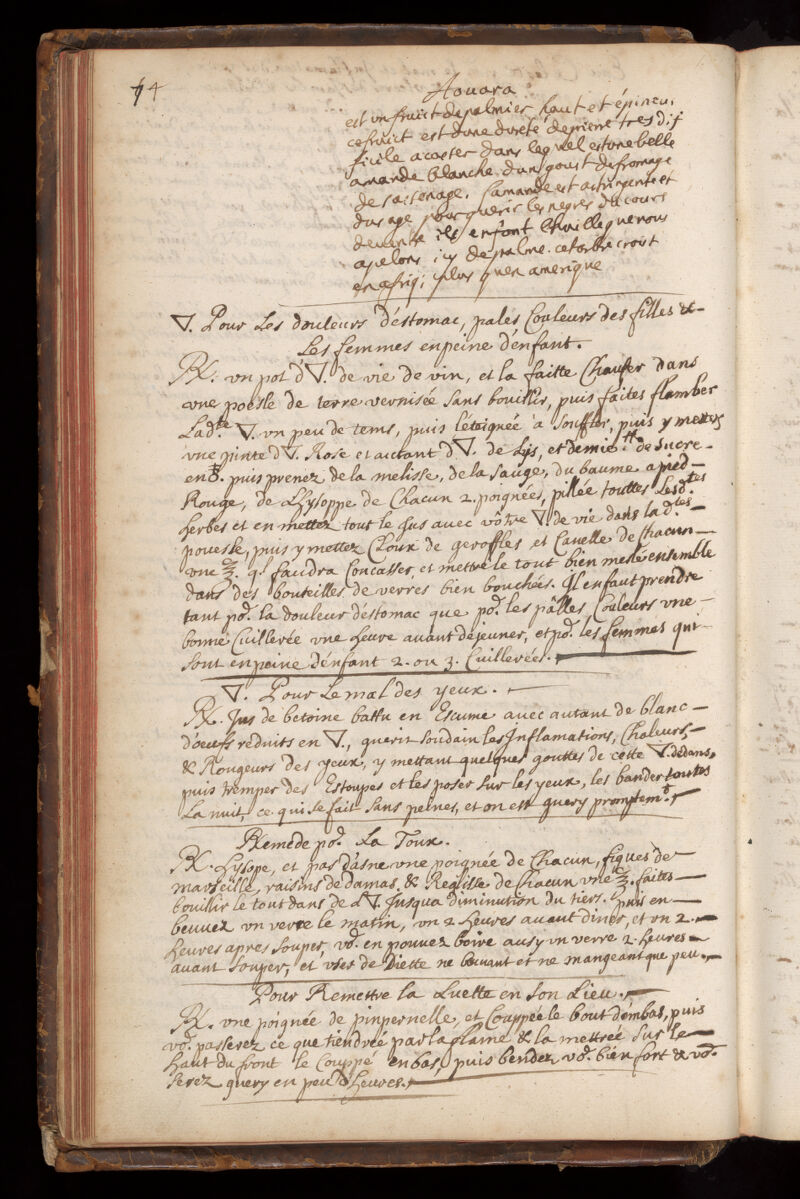 74
Aouara
est un fruict de palmier haut et épineux
ce fruict est d'une dureté de pierre tres dif
ficile a casser dans lequel est une belle
amande blanche d'un goust de fromage
de sassenage. l'amande est astringente et
d'usage pour guerir les negres du cours
de ventre ils en font l'huille que nous
apelons icy de palme. cet arbre croist
en afriq; plus qu'en amerique
∇. Pour Les douleurs d'éstomac, pales Couleurs des filles &
Les femmes en peine d'énfant.
℞. un pot d'∇. de vie de vin, et la faitte Chaufer dans
une poesle de terre vernisée sans bouillir, puis faites flamber
Lad.te ∇. un peu de tems, puis l'étaignée a souffler, puis y mettez
une pinte d'∇. Rose et autant d'∇. de Lys, et demie ℔ de sucre
en B. puis prenez de la melisse, de la sauge, du baume a pied
Rouge, de L'hysoppe de Chacun 2. poignées, pillée touttes Lesd.tes
herbes et en mettez tout le Jus avec vôtre ∇ de vie dans lad.te
poueslle, puis y mettez Cloux de geroffles et Canelle de Chacun
une ℥. q'l faudra Concasser, et mettre le tout bien meslé ensemble
dans des bouteilles de verres bien bouchées. Il en faut prendre
tant po.r la douleur d'éstomac que po.r les pâlles Couleurs une
bonne Cuillerée une heure avant dejeuner, et po.r les femmes qui
sont en peine d'énfant 2. ou 3. Cuillerées.
∇. Pour Le mal des yeux.
℞. Jus de betoine battu en Escume avec autant de blanc
d'oeufs réduits en ∇., guerit soudain les Jnflamations, Chaleurs,
& Rougeurs des yeux, y mettant quelques gouttes de cette ∇. dedans,
puis tremper des Estoupes et les poser sur les yeux, les bander toutes
La nuit, ce qui se fait sans peines, et on est guery promptem.t
Remede po.r La Toux.
℞. hysope, et pas d'asne une poignée de Chacun, figues de
marseille, raisins de damas, & Reglisse de Chacun une ℥. faites
bouillir le tout dans de L'∇. Jusqua diminution du tiers. puis en
beuvez un verre le matin, un 2 heures avant diner, et un 2.
heures apres souper, vo.s en pouvez boire aussy un verre 2. heures
avant souper, et user de Diette ne beuvant et ne mangeant que peu.
Pour Remettre la Luette en son Lieu.
℞. une poignée de pinpernelle, et Couppée le bout d'embas, puis
vo.s passerez ce que tiendrée par la flame & la mettrée sur le
haut du front le Couppé en bas, puis bendez vo.s bien fort & vo.s
serez guery en peu d'heures.